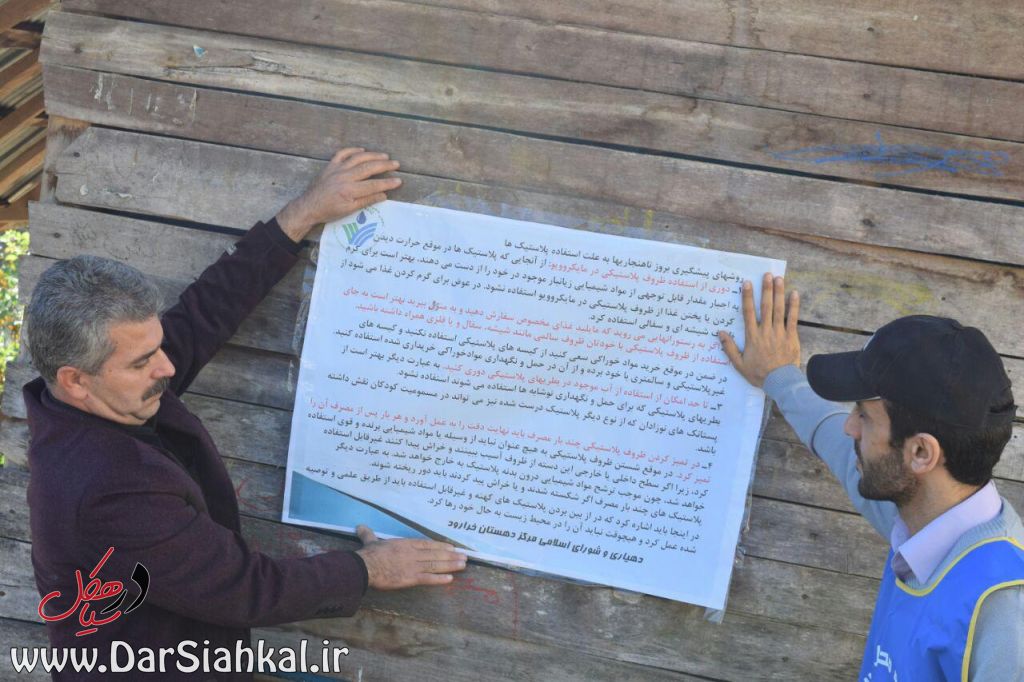 روشهای پیشگیری بروز ناهنجاریها به علت استفاده پلاستیک ها
۱ـ دوری از استفاده ظروف پلاستیکی در مایکروویو. از آنجایی که پلاستیک ها در موقع حرارت دیدن
به اجبار مقدار قابل توجهی از مواد شیمیایی زیانبار موجود در خود را از دست می دهند، بهتر است برای گرم
کردن یا پختن غذا از ظروف پلاستیکی در مایکروویو استفاده نشود. در عوض برای گرم کردن غذا می شود از
ظروف شیشه ای و سفالی استفاده کرد.
اگر به رستورانهایی می روید که مایلید غذای مخصوص سفارش دهید و به منزل ببرید بهتر است به جای
استفاده از ظروف پلاستیکی با خودتان ظروف سالمی مانند شیشه، سفال و یا فلزی همراه داشته باشید.
در ضمن در موقع خرید مواد خوراکی سعی کنید از کیسه های پلاستیکی استفاده نکنید و کیسه های
غیرپلاستیکی و سالمتری با خود برده و از آن در حمل و نگهداری موادخوراکی خریداری شده استفاده کنید.
۳ـ تا حد امکان از استفاده از آب موجود در بطریهای پلاستیکی دوری کنید. به عبارت دیگر بهتر است از
بطریهای پلاستیکی که برای حمل و نگهداری نوشابه ها استفاده می شوند استفاده نشود.
پستانک های نوزادان که از نوع دیگر پلاستیک درست شده نیز می تواند در مسمومیت کودکان نقش داشته
باشد.
۴ـ در تمیز کردن ظروف پلاستیکی چند بار مصرف باید نهایت دقت را به عمل آورد و هر بار پس از مصرف آن را
تمیز کرد. در موقع شستن ظروف پلاستیکی به هیچ عنوان نباید از وسیله یا مواد شیمیایی برنده و قوی استفاده
کرد، زیرا اگر سطح داخلی یا خارجی این دسته از ظروف آسیب ببینند و خراش پیدا کنند غیرقابل استفاده
خواهد شد، چون موجب ترشح مواد شیمیایی درون بدنه پلاستیک به خارج خواهد شد. به عبارت دیگر
پلاستیک های چند بار مصرف اگر شکسته شدند و یا خراش پیدا کردند باید دور ریخته شوند.
در اینجا باید اشاره کرد که در از بین بردن پلاستیک های کهنه و غیرقابل استفاده باید از طریق علمی و توصیه
شده عمل کرد و هیچوقت نباید آن را در محیط زیست به حال خود رها کرد.
دهیاری و شورای اسلامی مرکز دهستان خرارود
در سیاهکل
www.DarSiahkal.ir